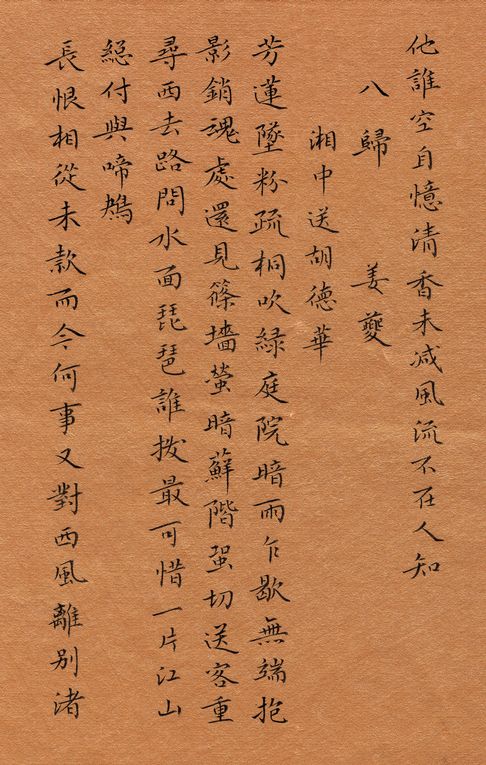 他誰空自憶清香未减風流不在人知
八歸 姜夔
湘中送胡德華
芳蓮墜粉疏桐吹緑庭院暗雨乍歇無端抱
影銷魂處還見篠墻螢暗蘚階蛩切送客重
尋西去路問水面琵琶誰撥最可惜一片江山
緫付與啼鴂
長恨相從未款而今何事又對西風離别渚